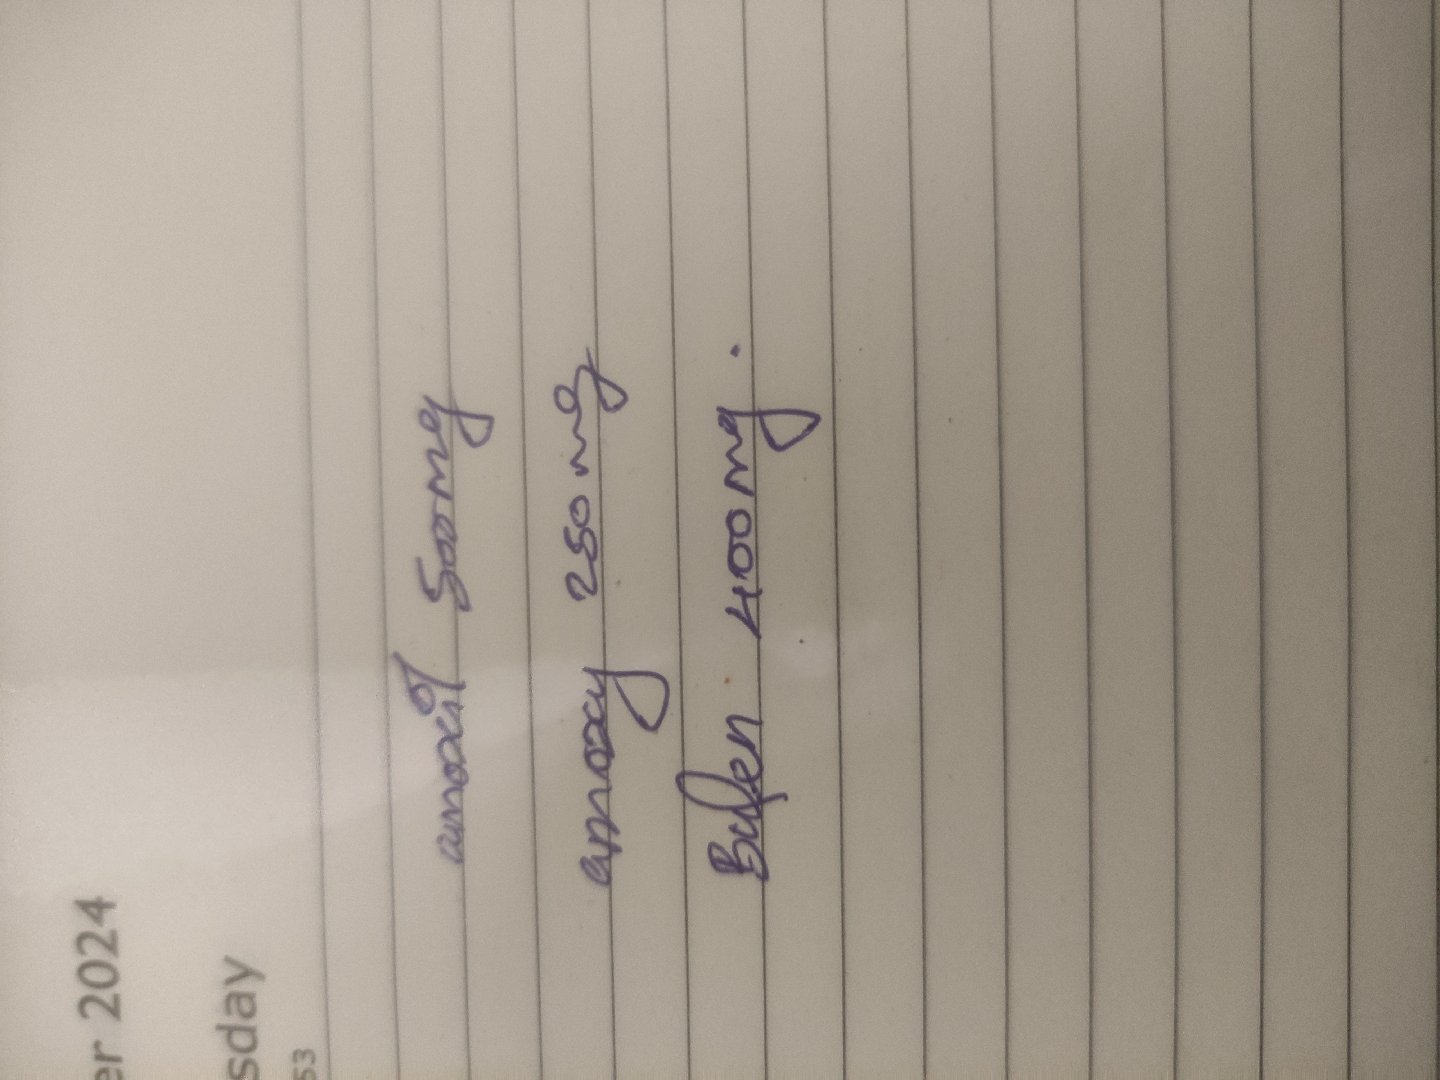 er 2024
sday
53
amoxil 500mg
amoxy 250mg
Bufen 400mg.